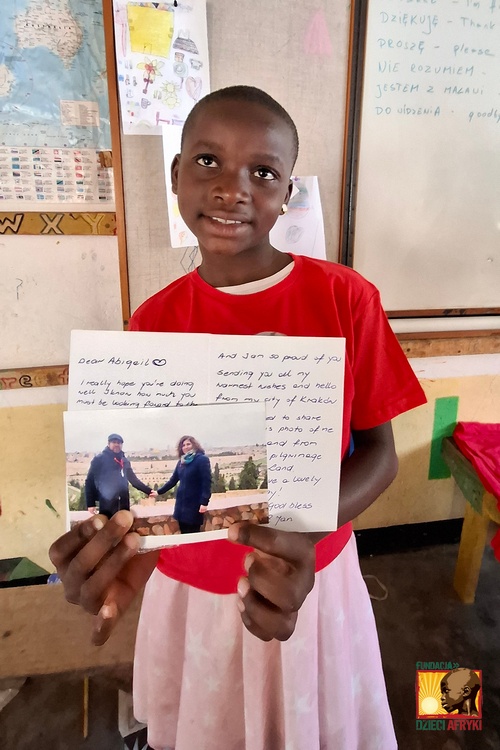 W X Y
DZIĘKUJĘ - Thank
PROSZĘ - please
NIE ROZUMIEM -
JESTEM Z MALAWI
DO WIDZENIA - goodby
Dear Abigail
I really hope you're doing
well I know how much you
must be looking forward to the
And I am so proud of you
sending you all my
warmest wishes and hello
from my city of Kraków
to share
photo of me
and from
pilgrimage
Land
a lovely
god bless
FUNDACJA
DZIECI AFRYKI